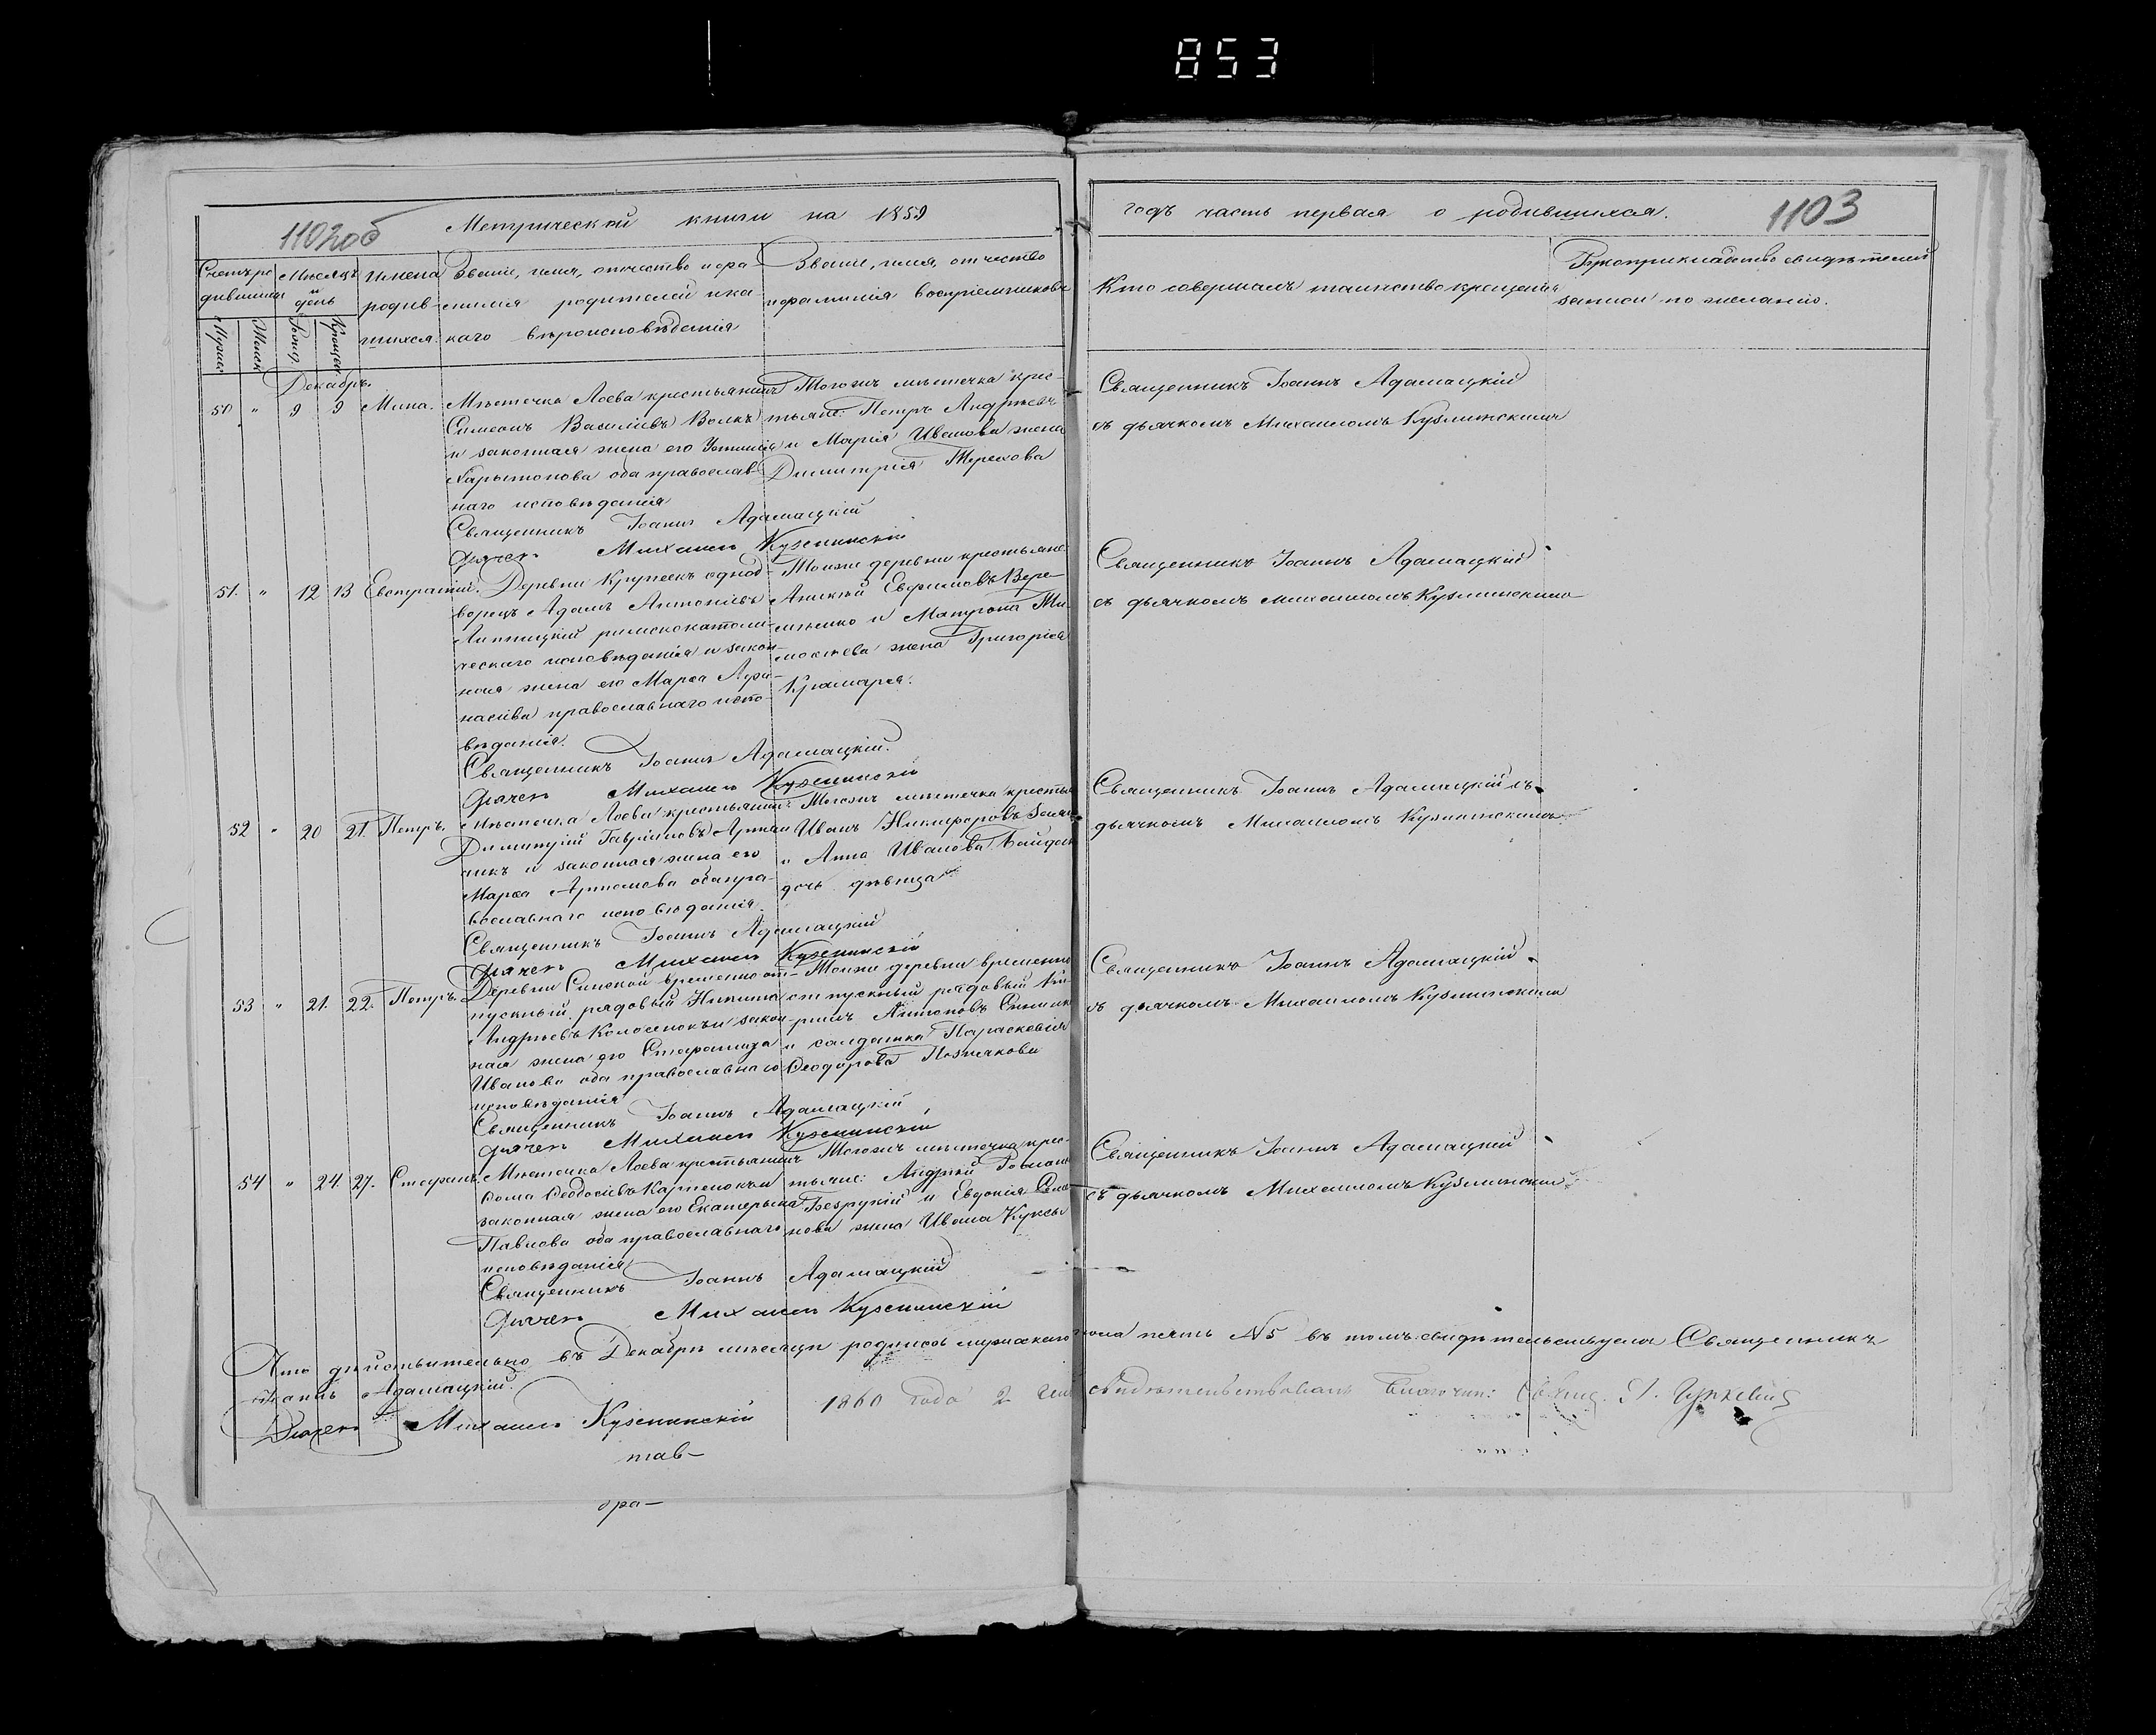 853
1102об
Метрической книги на 1859
годъ часть первая о родившихся.
1103
Счетъ ро
дившихся
Мужес.
Женск.
Мѣсяцъ
и
день
Рожд.
Крещен.
Имена
родив-
шихся.
Званіе, имя, отчество и фа-
милія родителей и ка-
каго вѣроисповѣданія
Званіе, имя, отчество
и фамилія воспріемниковъ
Кто совершалъ таинство крещенія
Рукоприкладство свидѣтелей
записи по желанію.
Декабрь.
50 " 9 9 Мина.
Мѣстечка Лоева крестьянинъ
Симеонъ Василіевъ Волкъ
и законная жена его Устинія
Харытонова оба православ-
наго исповѣданія
Священникъ Іоаннъ Адамацкій
Дьячекъ Михаилъ Кузминскій
Тогожъ мѣстечка крес-
тьяне: Петръ Андрѣевъ
и Марія Иванова жена
Димитрія Терехова
Священникъ Іоаннъ Адамацкій
съ дьячкомъ Михаиломъ Кузминскимъ
51. " 12 13 Евстратій.
Деревни Крупеекъ однод-
ворецъ Адамъ Антоніевъ
Липницкій римскокатоли-
ческаго исповѣданія и закон-
ная жена его Марѳа Афа-
насіева православнаго испо-
вѣданія.
Священникъ Іоаннъ Адамацкій.
Дьячекъ Михаилъ Кузминскій
Тойже деревни крестьяне
Алексѣй Евфимовъ Вере-
мѣенко и Матрона Ти-
моѳѣева жена Григорія
Крамаря.
Священникъ Іоаннъ Адамацкій
съ дьячкомъ Михаиломъ Кузминскимъ
52 " 20 21. Петръ.
Мѣстечка Лоева крестьянинъ
Димитрій Гавріиловъ
и законная жена его
Марѳа Артемова оба пра-
вославнаго исповѣданія.
Священникъ Іоаннъ Адамацкій
Дьячекъ Михаилъ Кузминскій
Тогожъ мѣстечка крестья
Иванъ Никифоровъ
и Анна Иванова
дочь дѣвица
Священникъ Іоаннъ Адамацкій съ
дьячкомъ Михаиломъ Кузминскимъ
53 " 21. 22. Петръ.
Деревни Синской временноот-
пускный рядовый Никита
Андрѣевъ Колосенокъ и закон-
ная жена его Стефанида
Иванова оба православнаго
исповѣданія
Священникъ Іоаннъ Адамацкій
Дьячекъ Михаилъ Кузминскій
Тойже деревни временно
отпускный рядовый Ки-
рилъ Антоновъ
и салдатка Параскевія
Ѳеодорова Познякова
Священникъ Іоаннъ Адамацкій
съ дьячкомъ Михаиломъ Кузминскимъ
54 " 24. 27. Стефанъ.
Мѣстечка Лоева крестьянинъ
Ѳома Ѳеодосіевъ Карпенокъ и
законная жена его Екатерына
Павлова оба православнаго
исповѣданія
Священникъ Іоаннъ Адамацкій
Дьячекъ Михаилъ Кузминскій
Тогожъ мѣстечка крес-
тьяне: Андрей Романов
Безрукій и Евдокія Симо-
нова жена Ивана Куксы
Священникъ Іоаннъ Адамацкій
съ дьячкомъ Михаиломъ Кузминским
Что дѣйствительно въ Декабрѣ мѣсяцѣ родилось мужескаго пола пять № 5 въ томъ свидѣтельствуемъ Священникъ
Іоаннъ Адамацкій.
Дьячекъ Михаилъ Кузминскій
1860 года 2 свидѣтельствовалъ Благочин: Свящ.
тав-
ора-